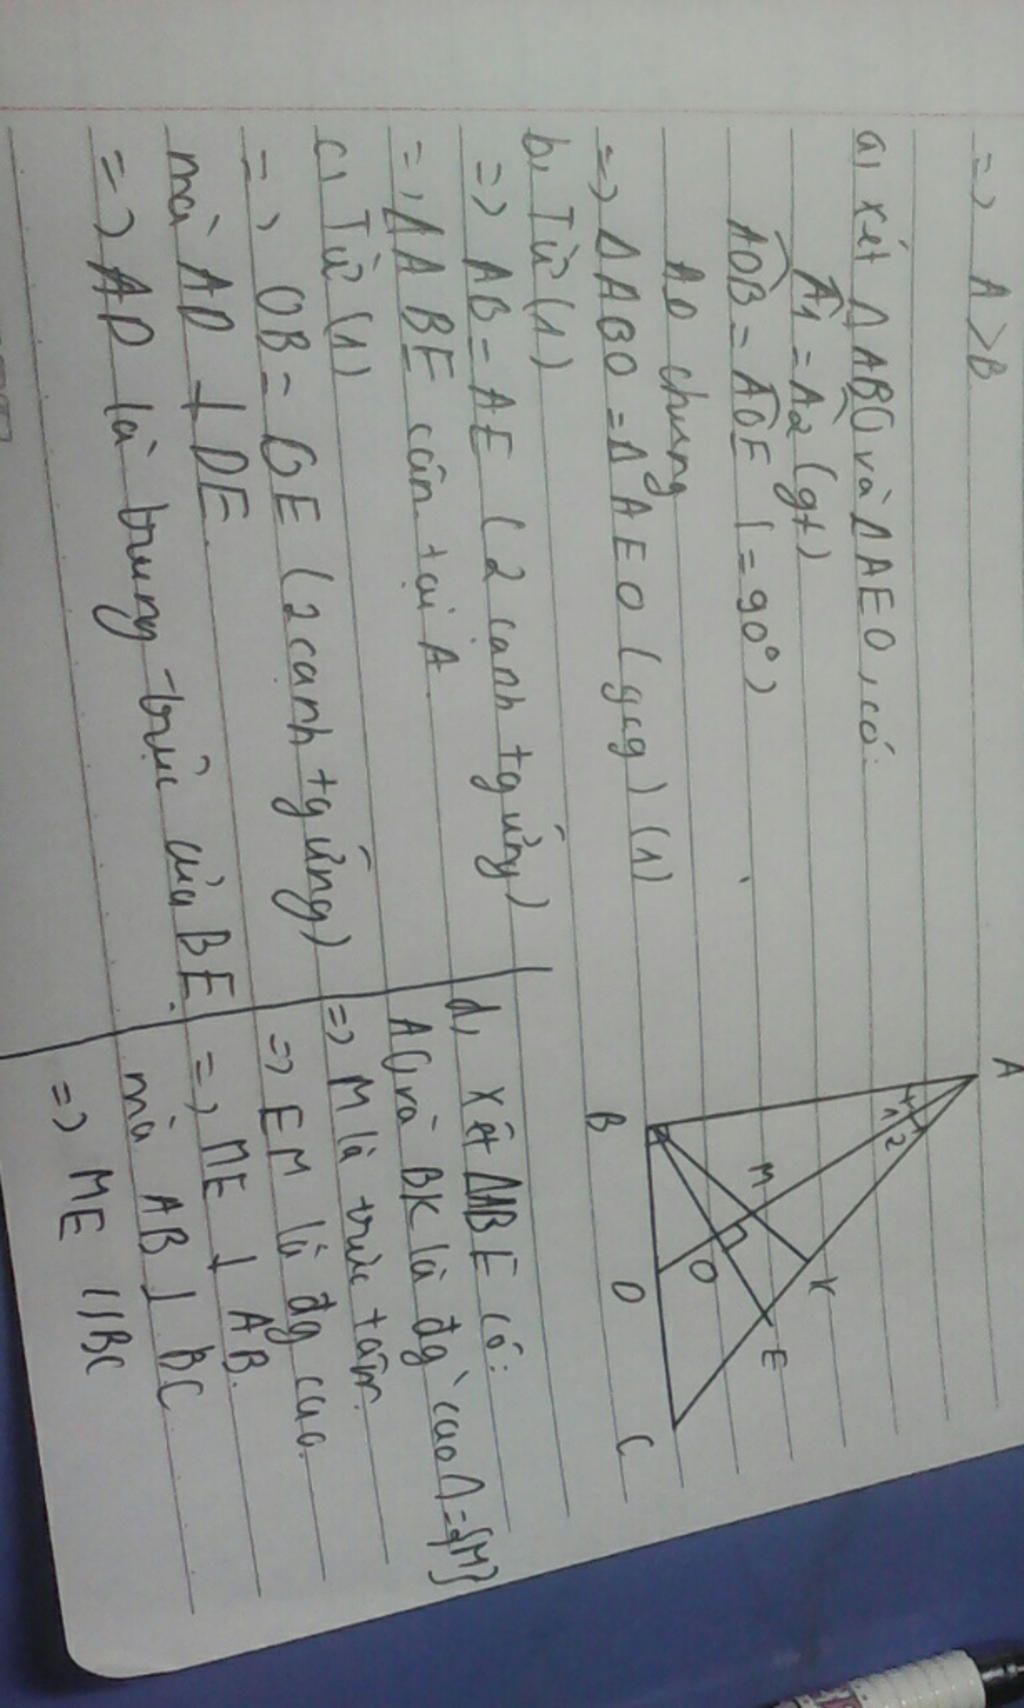 => A > B
a, xét ΔABO và ΔAEO, có:
Â1 = Â2 (gt)
AOB = AOE (= 90°)
AO chung
=> ΔABO = ΔAEO (gcg) (1)
b, Từ (1)
=> AB = AE (2 cạnh tg ứng)
=> ΔABE cân tại A
c, Từ (1)
=> OB = OE (2 cạnh tg ứng)
mà AD ⊥ DE.
=> AD là trung trực của BE.
A
1 2
B
M
K
O
E
D
C
d, Xét ΔABE có:
AO và BK là đg cao ∩ = {M}
=> M là trực tâm.
=> EM là đg cao.
=> ME ⊥ AB.
mà AB ⊥ BC
=> ME // BC